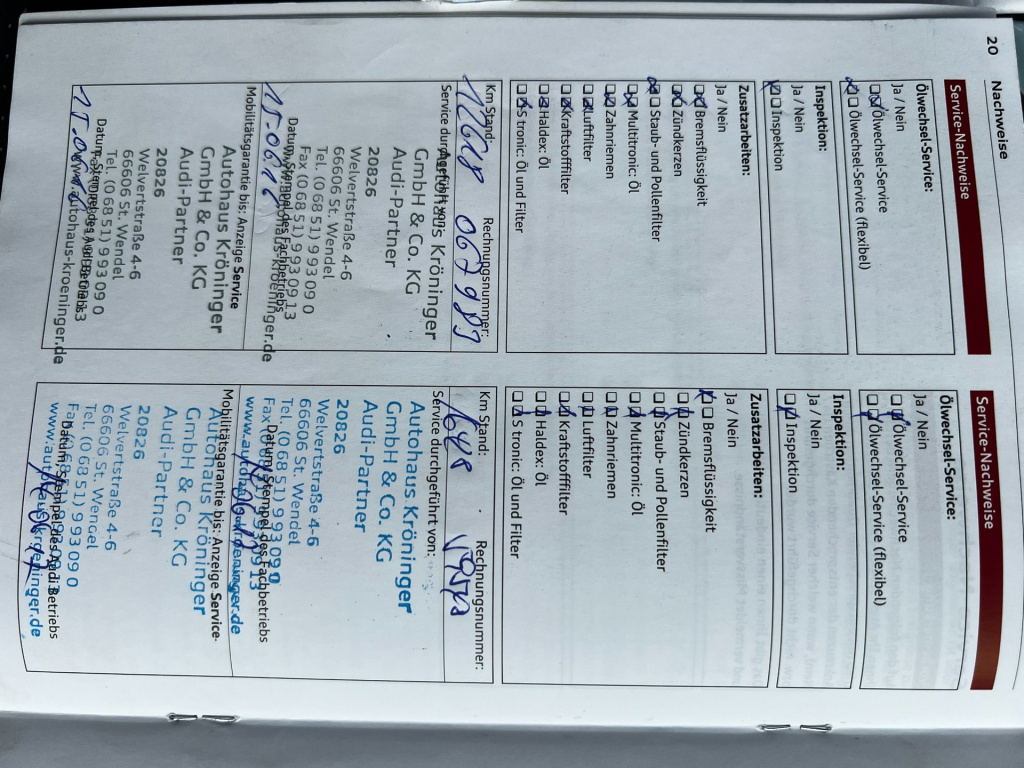 20
Nachweise
Service-Nachweise
Ölwechsel-Service:
Ja / Nein
Ölwechsel-Service
Ölwechsel-Service (flexibel)
Inspektion:
Ja / Nein
Inspektion
Zusatzarbeiten:
Ja / Nein
Bremsflüssigkeit
Zündkerzen
Staub- und Pollenfilter
Multitronic: Öl
Zahnriemen
Luftfilter
Kraftstofffilter
Haldex: Öl
S tronic: Öl und Filter
Km Stand: Rechnungsnummer:
Service durchgeführt von:
Autohaus Kröninger
GmbH & Co. KG
Audi-Partner
20826
Welvertstraße 4-6
66606 St. Wendel
Tel. (0 68 51) 9 93 09 0
Fax (0 68 51) 9 93 09 13
Datum, Stempel des Fachbetriebs
Mobilitätsgarantie bis: Anzeige Service
Autohaus Kröninger
GmbH & Co. KG
Audi-Partner
20826
Welvertstraße 4-6
66606 St. Wendel
Tel. (0 68 51) 9 93 09 0
Datum, Stempel des Audi Betriebs
www.autohaus-kroeninger.de
Service-Nachweise
Ölwechsel-Service:
Ja / Nein
Ölwechsel-Service
Ölwechsel-Service (flexibel)
Inspektion:
Ja / Nein
Inspektion
Zusatzarbeiten:
Ja / Nein
Bremsflüssigkeit
Zündkerzen
Staub- und Pollenfilter
Multitronic: Öl
Zahnriemen
Luftfilter
Kraftstofffilter
Haldex: Öl
S tronic: Öl und Filter
Km Stand: Rechnungsnummer:
Service durchgeführt von:
Autohaus Kröninger
GmbH & Co. KG
Audi-Partner
20826
Welvertstraße 4-6
66606 St. Wendel
Tel. (0 68 51) 9 93 09 0
Datum, Stempel des Fachbetriebs
Mobilitätsgarantie bis: Anzeige Service-
Autohaus Kröninger
GmbH & Co. KG
Audi-Partner
20826
Welvertstraße 4-6
66606 St. Wendel
Tel. (0 68 51) 9 93 09 0
Datum, Stempel des Audi Betriebs
www.autohaus-kroeninger.de